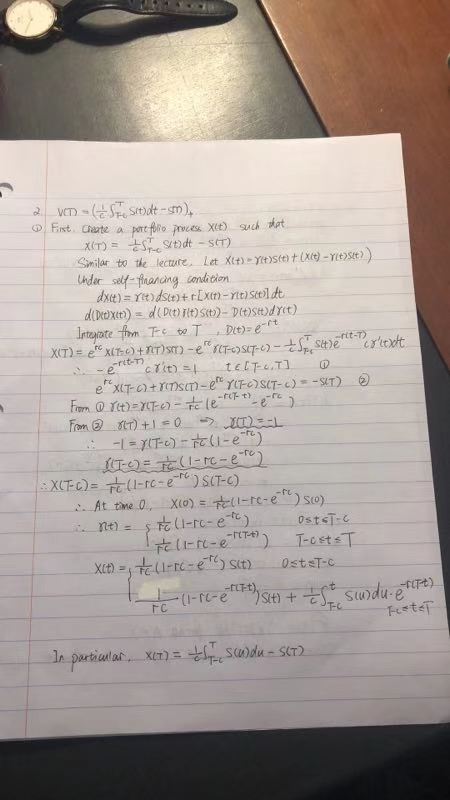 2. V(T) = (1/c ∫_{T-c}^{T} S(t)dt - S(T))_+
① First, create a portfolio process X(t) such that
X(T) = 1/c ∫_{T-c}^{T} S(t)dt - S(T)
Similar to the lecture. Let X(t) = γ(t)S(t) + (X(t) - γ(t)S(t))
Under self-financing condition
dX(t) = γ(t)dS(t) + r[X(t) - γ(t)S(t)]dt
d(D(t)X(t)) = d(D(t)γ(t)S(t)) - D(t)S(t)dγ(t)
Integrate from T-c to T, D(t) = e^{-rt}
X(T) = e^{rc}X(T-c) + γ(T)S(T) - e^{rc}γ(T-c)S(T-c) - 1/c ∫_{T-c}^{T} S(t)e^{-r(t-T)}cγ'(t)dt
∴ -e^{-r(t-T)}cγ'(t) = 1 t∈[T-c,T] ①
e^{rc}X(T-c) + γ(T)S(T) - e^{rc}γ(T-c)S(T-c) = -S(T) ②
From ① γ(t) = γ(T-c) - 1/rc (e^{-r(T-t)} - e^{-rc})
From ② γ(T) + 1 = 0 ⇒ γ(T) = -1
∴ -1 = γ(T-c) - 1/rc (1 - e^{-rc})
γ(T-c) = 1/rc (1 - rc - e^{-rc})
∴ X(T-c) = 1/rc (1 - rc - e^{-rc}) S(T-c)
∴ At time 0, X(0) = 1/rc (1 - rc - e^{-rc}) S(0)
∴ γ(t) = { 1/rc (1 - rc - e^{-rc}) 0≤t≤T-c
1/rc (1 - rc - e^{-r(T-t)}) T-c≤t≤T
X(t) = { 1/rc (1 - rc - e^{-rc}) S(t) 0≤t≤T-c
1/rc (1 - rc - e^{-r(T-t)}) S(t) + 1/c ∫_{T-c}^{t} S(u)du · e^{-r(T-t)}
T-c≤t≤T
In particular, X(T) = 1/c ∫_{T-c}^{T} S(u)du - S(T)